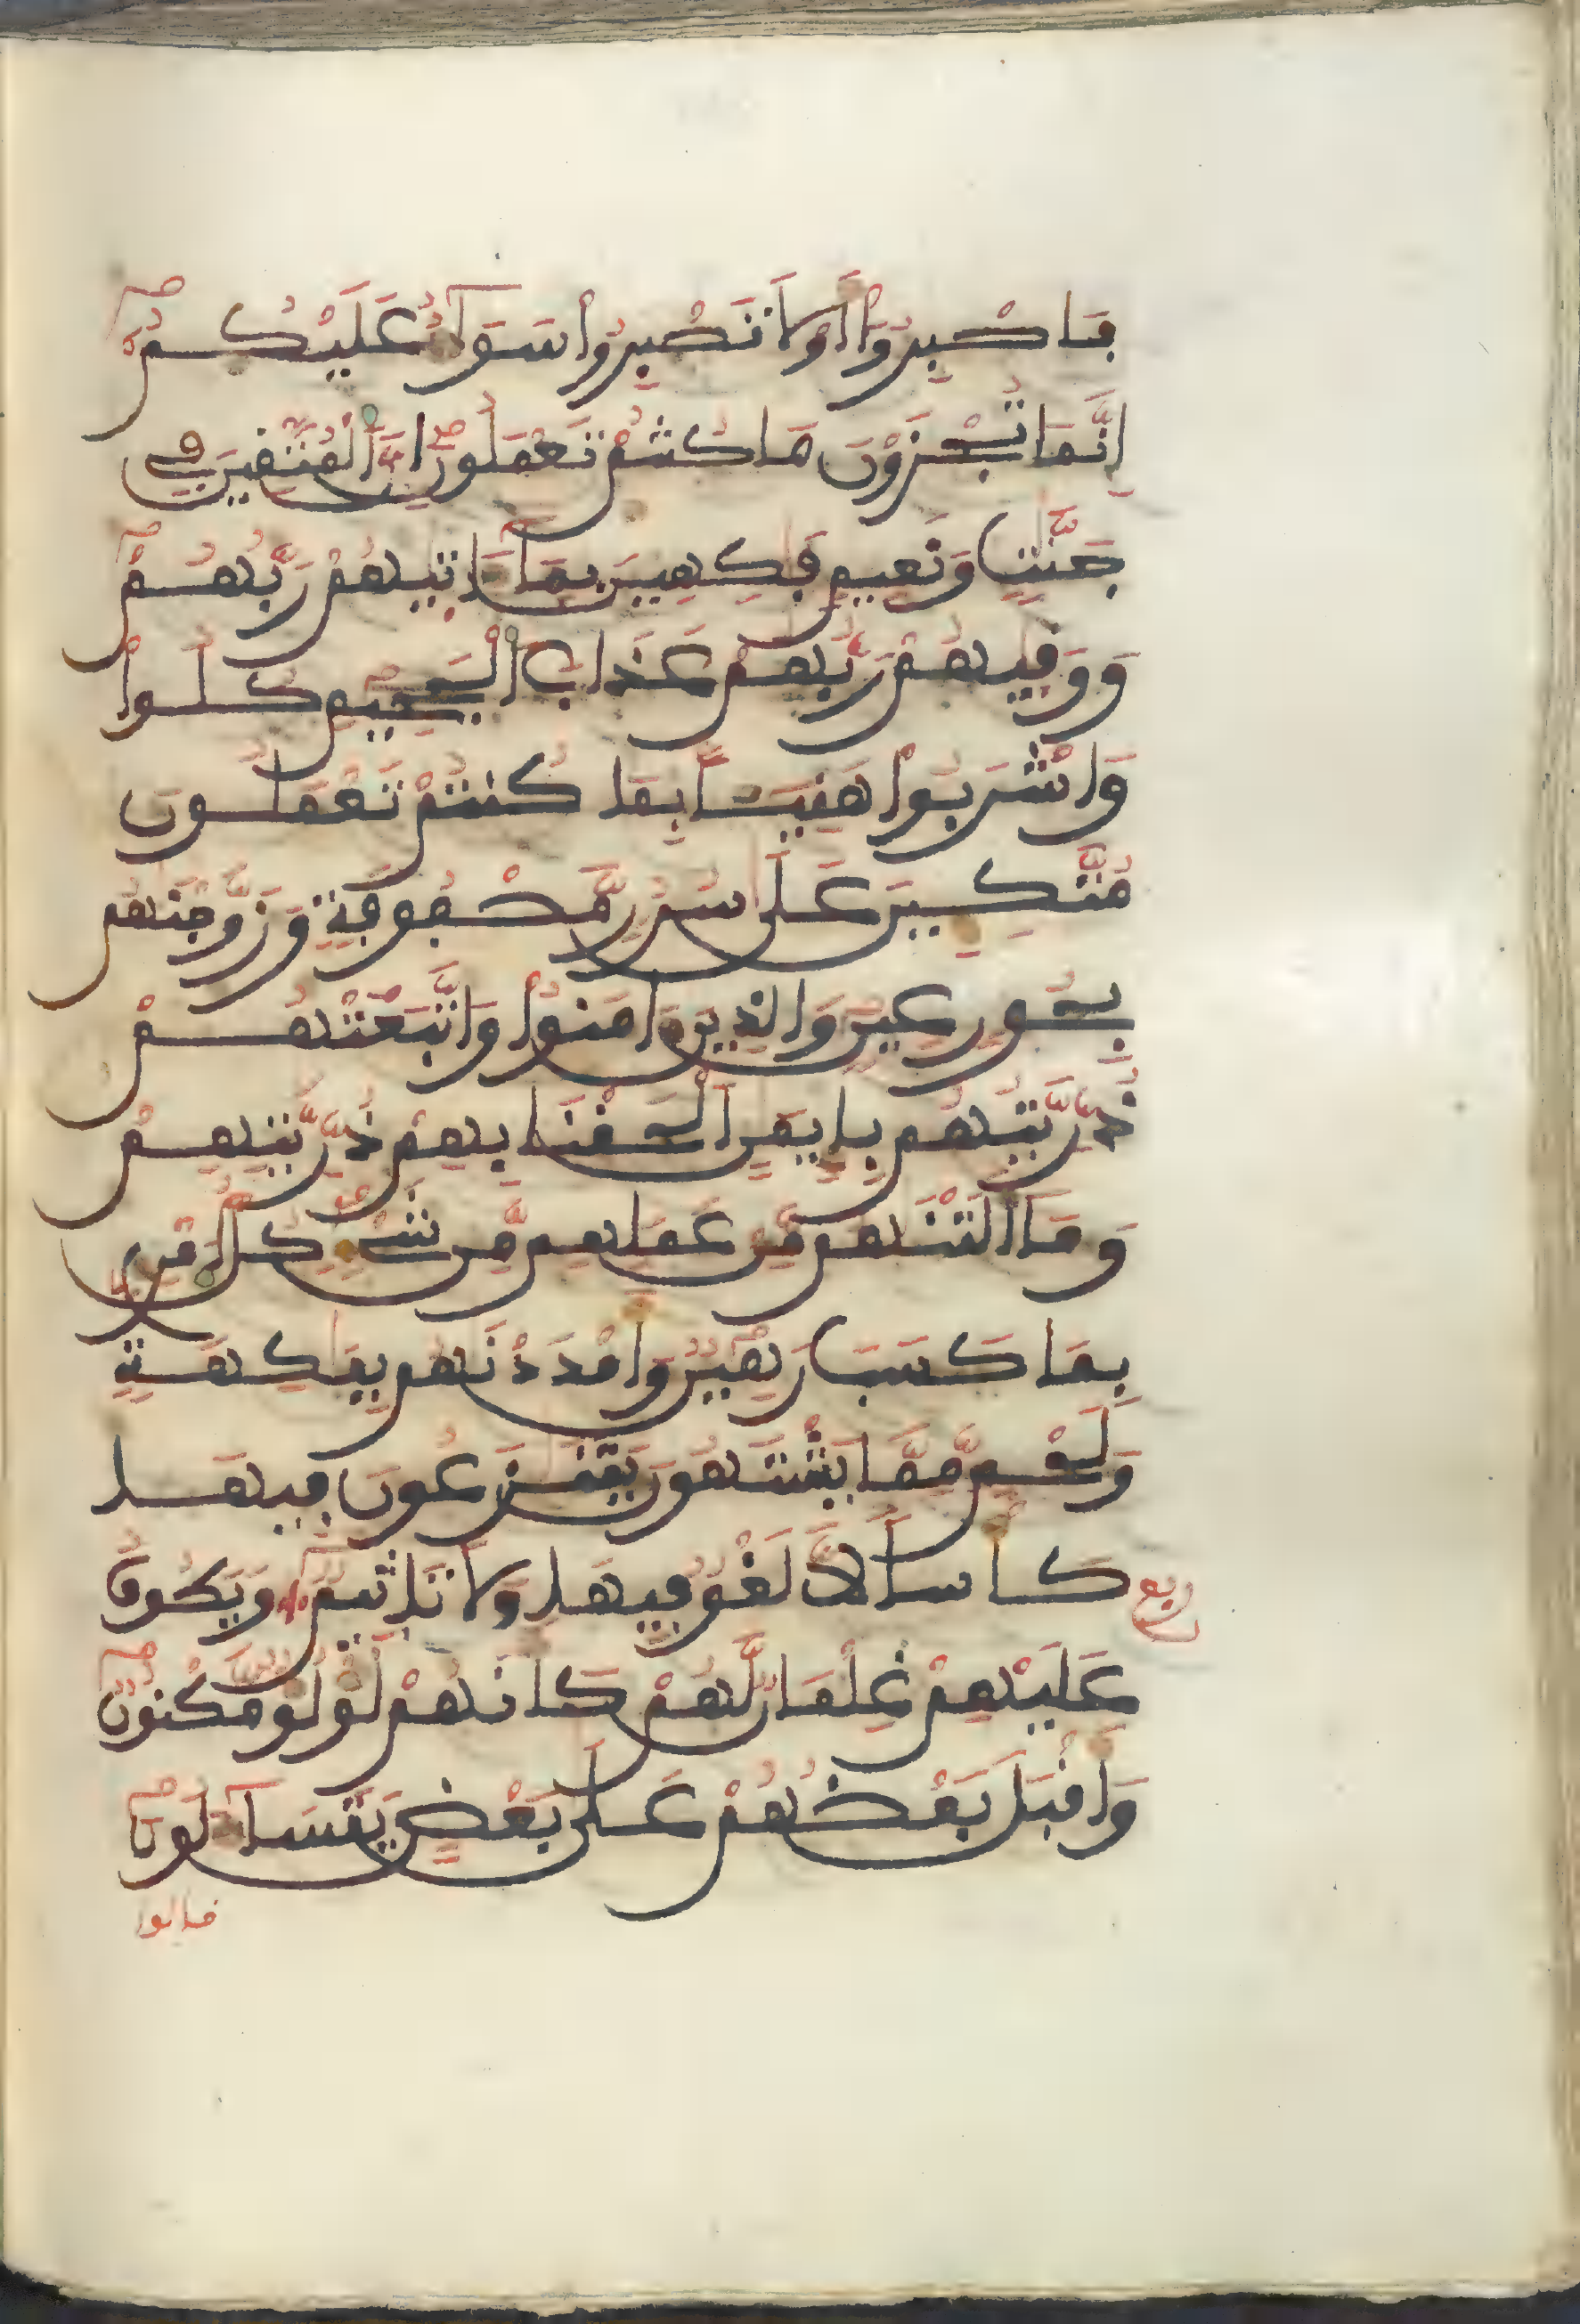 فَاصْبِرُوٓا أَوْ لَا تَصْبِرُوا سَوَآءٌ عَلَيْكُمُ
إِنَّمَا تُجْزَوْنَ مَا كُنتُمْ تَعْمَلُونَ إِنَّ الْمُتَّقِينَ فِي
جَنَّٰتٍ وَنَعِيمٍ فَٰكِهِينَ بِمَآ ءَاتَيٰهُمْ رَبُّهُمْ
وَوَقَيٰهُمْ رَبُّهُمْ عَذَابَ الْجَحِيمِ كُلُوا
وَاشْرَبُوا هَنِيـًٔا بِمَا كُنتُمْ تَعْمَلُونَ
مُتَّكِـِٔينَ عَلَىٰ سُرُرٍ مَّصْفُوفَةٍ وَزَوَّجْنَٰهُم
بِحُورٍ عِينٍ وَالَّذِينَ ءَامَنُوا وَاتَّبَعَتْهُمْ
ذُرِّيَّتُهُم بِإِيمَٰنٍ أَلْحَقْنَا بِهِمْ ذُرِّيَّٰتِهِمْ
وَمَآ أَلَتْنَٰهُم مِّنْ عَمَلِهِم مِّن شَيْءٍ كُلُّ امْرِئٍ
بِمَا كَسَبَ رَهِينٌ وَأَمْدَدْنَٰهُم بِفَٰكِهَةٍ
وَلَحْمٍ مِّمَّا يَشْتَهُونَ يَتَنَٰزَعُونَ فِيهَا
كَأْسًا لَّا لَغْوٌ فِيهَا وَلَا تَأْثِيمٌ وَيَطُوفُ
ربع
عَلَيْهِمْ غِلْمَانٌ لَّهُمْ كَأَنَّهُمْ لُؤْلُؤٌ مَّكْنُونٌ
وَأَقْبَلَ بَعْضُهُمْ عَلَىٰ بَعْضٍ يَتَسَآءَلُونَ
قالوا